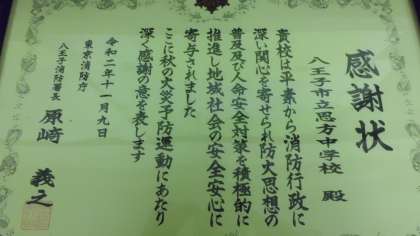 感謝状
八王子市立恩方中学校 殿
貴校は平素から消防行政に
深い関心を寄せられ防火思想の
普及及び人命安全対策を積極的に
推進し地域社会の安全安心に
寄与されました
ここに秋の火災予防運動にあたり
深く感謝の意を表します
令和二年十一月九日
東京消防庁
八王子消防署長 原崎 義之